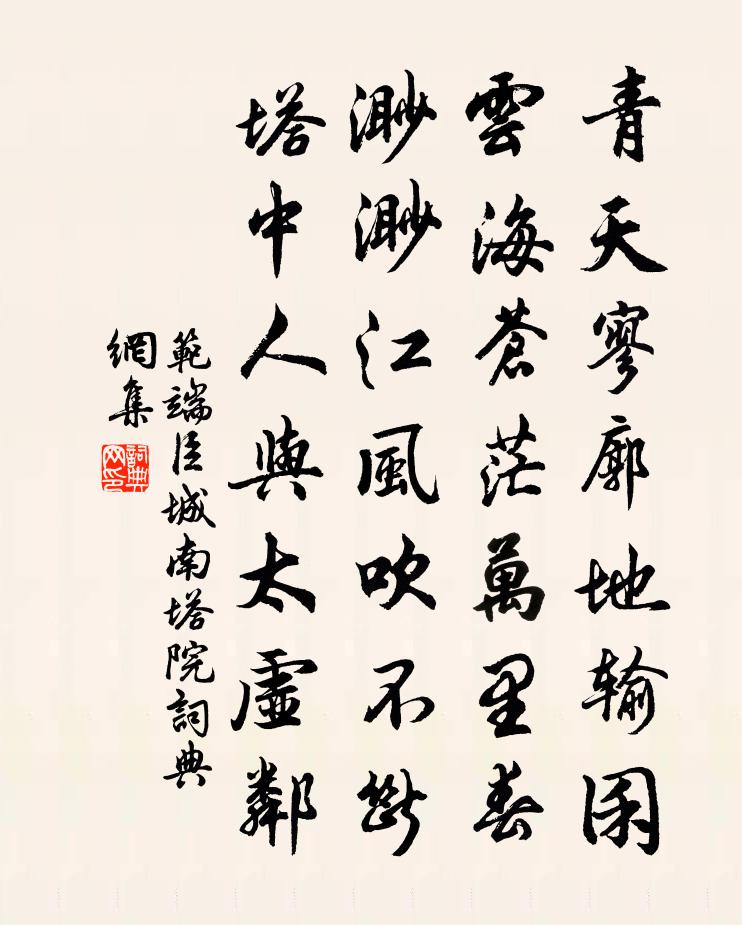 青天寥廓地輪囷
雲海蒼茫萬里春
渺渺江風吹不斷
塔中人與太虛鄰
範端臣城南塔院詞典
網集
詞典
网印